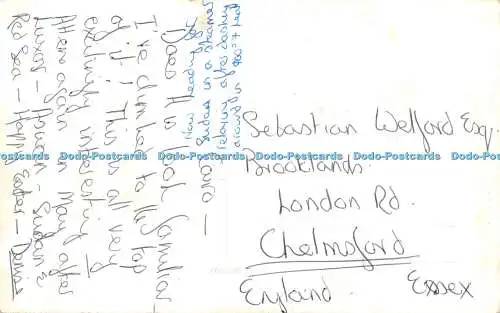 Cairo —
Does this look familiar—
I've climbed to the top
of it! This is all very
interesting &
Athens again in May after
Luxor – Aswan – Sudan &
Red Sea – Happy Easter – Denis
Now heading for
Sudan in a steamer
relaxing after dashing
around in heat
Sebastian Welford Esq
Brooklands
London Rd.
Chelmsford
England. Essex
Dodo-Postcards Dodo-Postcards Dodo-Postcards Dodo-Postcards
Dodo-Postcards Dodo-Postcards Dodo-Postcards Dodo-Postcards